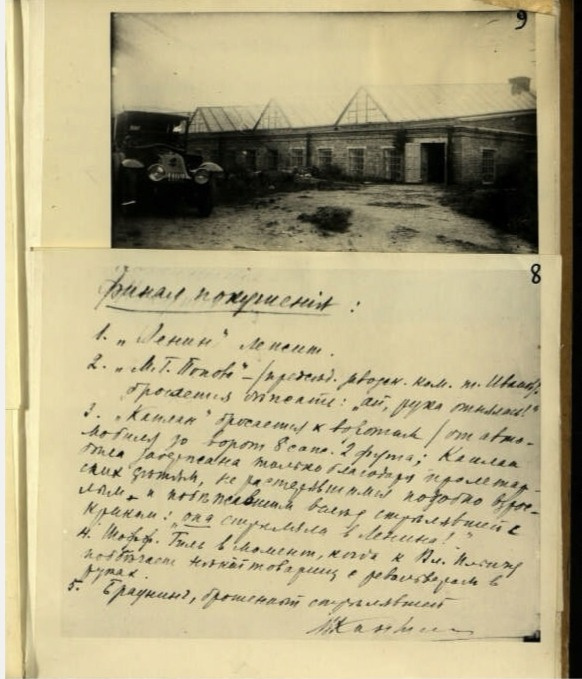 9
8
Финал покушенія:
1. „Ленин" лежит.
2. „М. Г. Попова" – (предсѣд. заводск. ком. т. Иванов)
бросается бѣжать: „ой, рука отнялась!"
3. „Каплан" бросается к воротам (от авто-
мобиля до ворот 8 саж. 2 фута; Каплан
была задержана только благодаря пролетар-
ским дѣтям, не растерявшимся подобно взрос-
лым и побѣжавшим вслед стрѣлявшей с
криком: „она стрѣляла в Ленина!"
4. Шофф. Гиль в момент, когда к Вл. Ильичу
подбѣгает нѣкій товарищ с револьвером в
руках.
5. Браунинг, брошенный стрѣлявшей